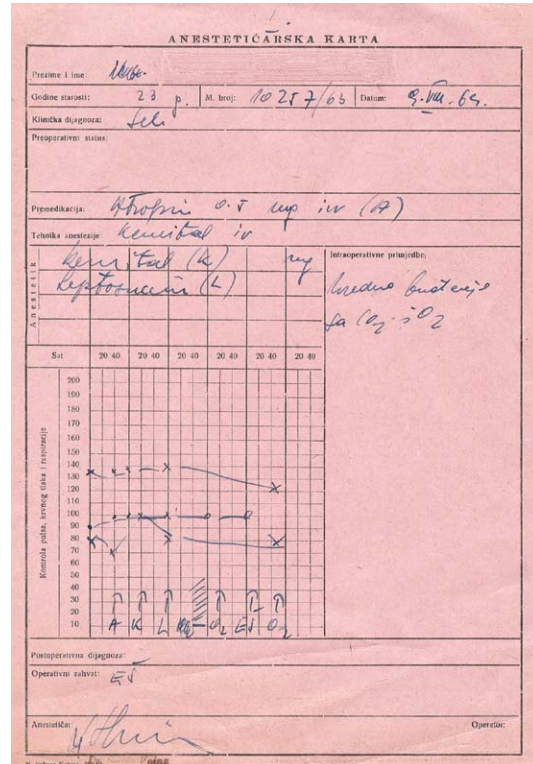 ANESTETIČARSKA KARTA
Prezime i ime:
Godine starosti: 23 M. broj: 10257/63 Datum: 9. VIII. 63.
Klinička dijagnoza:
Preoperativni status:
Premedikacija: Atropin 0.5 mg iv (A)
Tehnika anestezije: Kemital iv
Anestetik
Kemital (K) mg
Leptosuccin (L)
Intraoperativne primjedbe:
sa CO2 i O2
Sat 20 40 20 40 20 40 20 40 20 40 20 40
Kontrola pulsa, krvnog tlaka i respiracije
200
190
180
170
160
150
140
130
120
110
100
90
80
70
60
50
40
30
20
10
A K L O2 EŠ O2
Postoperativna dijagnoza:
Operativni zahvat: EŠ
Anestetičar:
Operatör: